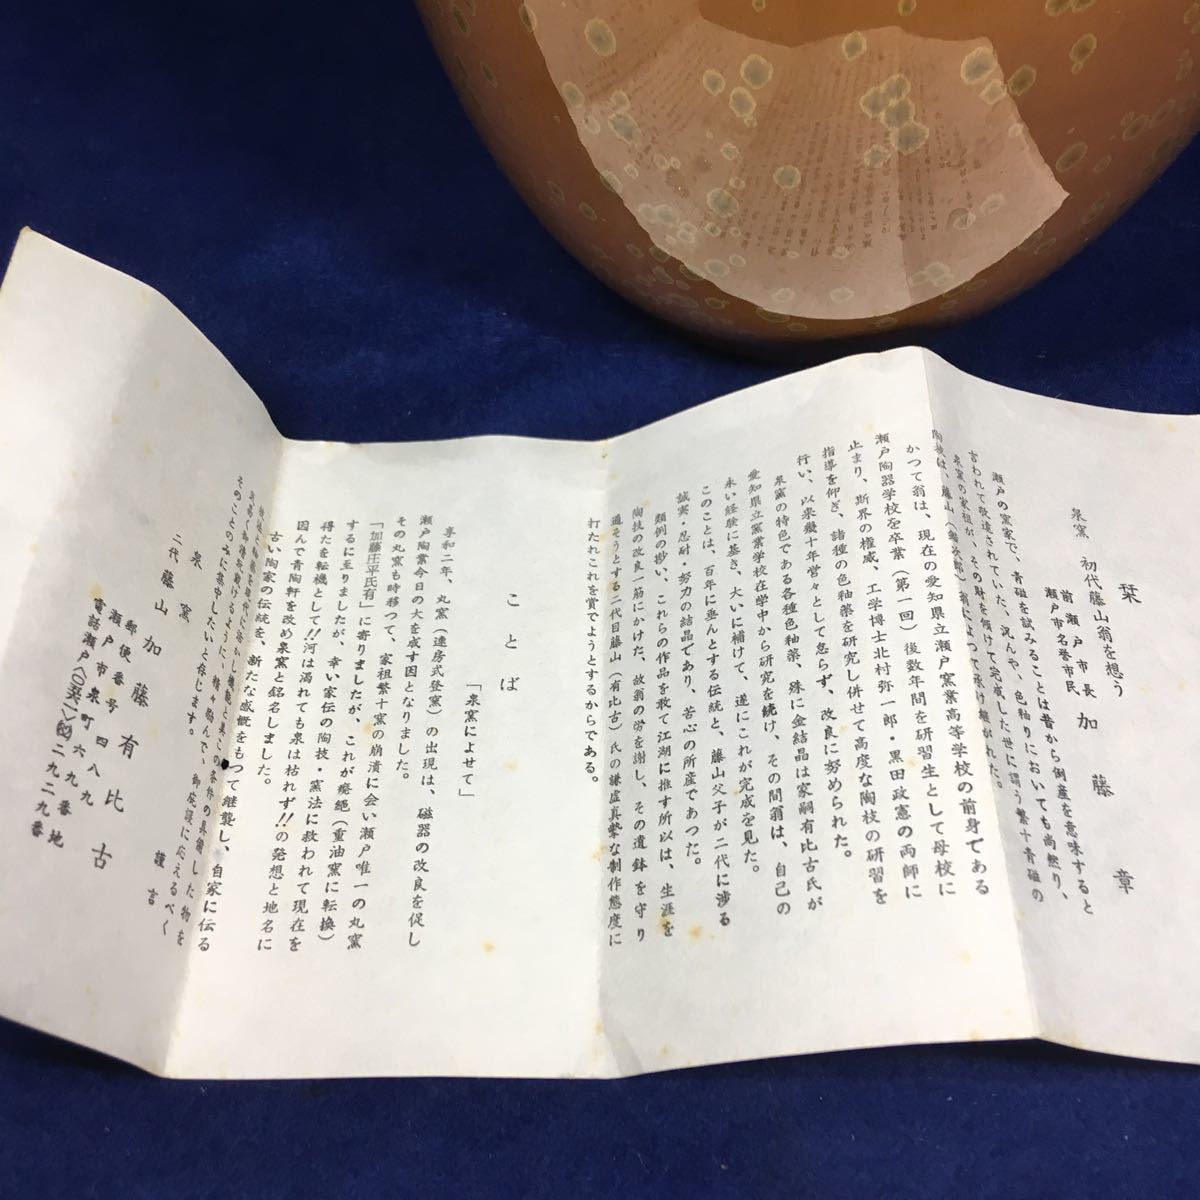 栞
泉窯 初代藤山翁を想う
前瀬戸市長
瀬戸市名誉市民
加藤章
瀬戸の窯家で、青磁を試みることは昔から倒産を意味すると
言われて敬遠されていた、況んや、色釉りにおいても尚然り、
泉窯の家祖が、その財を傾けて完成した世に謂う繁十青磁の
陶技は、藤山（錦次郎）翁によつて受け継がれた。
かつて翁は、現在の愛知県立瀬戸窯業高等学校の前身である
瀬戸陶器学校を卒業（第一回）後数年間を研習生として母校に
止まり、斯界の権威、工学博士北村弥一郎・黒田政憲の両師に
指導を仰ぎ、諸種の色釉薬を研究し併せて高度な陶技の研習を
行い、以来幾十年営々として怠らず、改良に努められた。
泉窯の特色である各種色釉薬、殊に金結晶は家嗣有比古氏が
愛知県立窯業学校在学中から研究を続け、その間翁は、自己の
永い経験に基き、大いに補けて、遂にこれが完成を見た。
このことは、百年に垂んとする伝統と、藤山父子が二代に渉る
誠実・忍耐・努力の結晶であり、苦心の所産であつた。
類例の尠い、これらの作品を敢て江湖に推す所以は、生涯を
陶技の改良一筋にかけた、故翁の労を謝し、その遺鉢を守り
通そうとする二代目藤山（有比古）氏の謙虚真摯な制作態度に
打たれこれを賞でようとするからである。
ことば
「泉窯によせて」
享和二年、丸窯（連房式登窯）の出現は、磁器の改良を促し
瀬戸陶業今日の大を成す因となりました。
その丸窯も時移つて、家祖繁十窯の崩潰に会い瀬戸唯一の丸窯
「加藤庄平氏有」に寄りましたが、これが廃絶（重油窯に転換）
するに至りましたが、幸い家伝の陶技・窯法に救われて現在を
得たを転機として!!河は涸れても泉は枯れず!!の発想と地名に
因んで青陶軒を改め泉窯と銘名しました。
古い陶家の伝統を、新たな感慨をもつて継襲し、自家に伝る
の条件の具備した物を
見易く御清玩戴けるように、精々励んで、御庇護に応えるべく
そのことのみに集中したいと存じます。
謹言
泉窯
二代 藤山 加藤有比古
郵便番号 四八九
瀬戸市泉町六九番地
電話瀬戸二九二九番